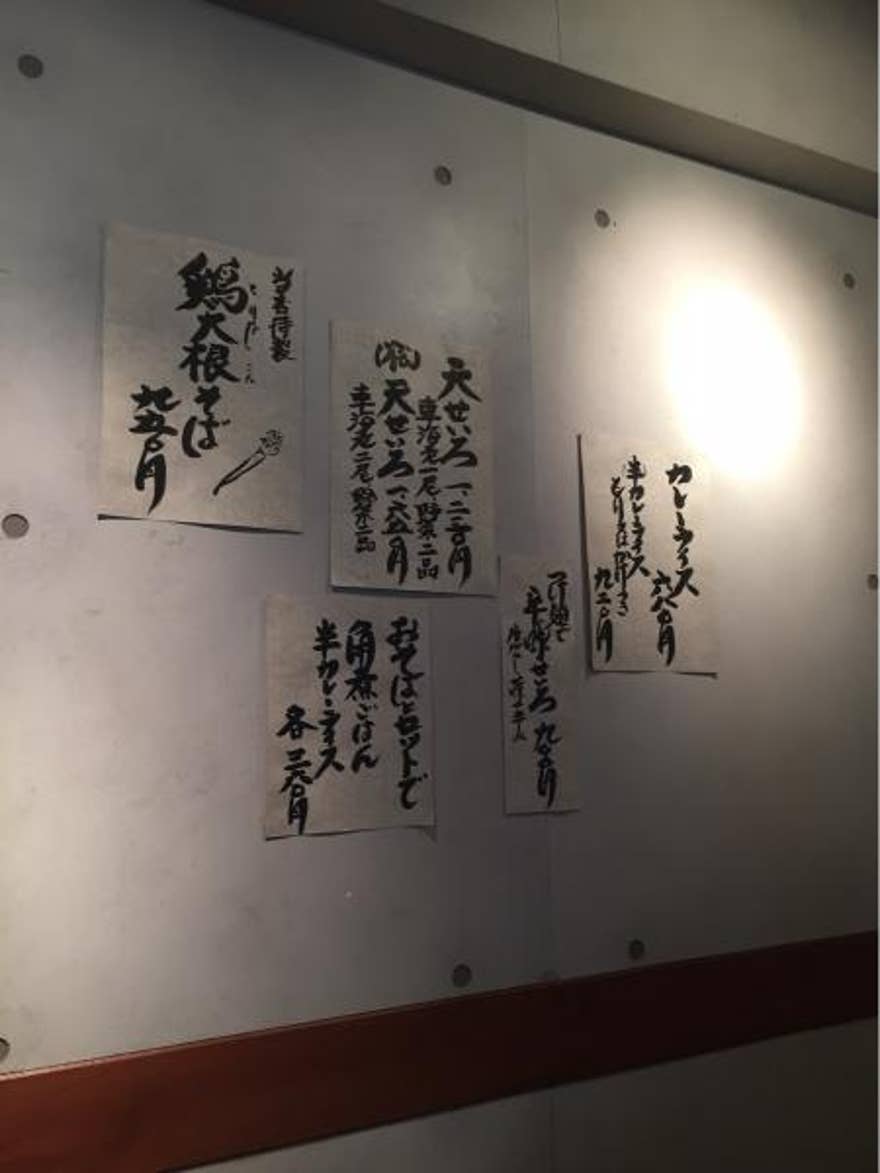 特製
鶏大根そば
とりだいこん
九五〇円
天せいろ 一、二五〇円
車海老一尾 野菜二品
天せいろ 一、六五〇円
車海老二尾 野菜二品
おそばとセットで
角煮ごはん
半カレーライス
各 三六〇円
せいろ 九五〇円
カレーライス 六八〇円
半カレーライス
九二〇円